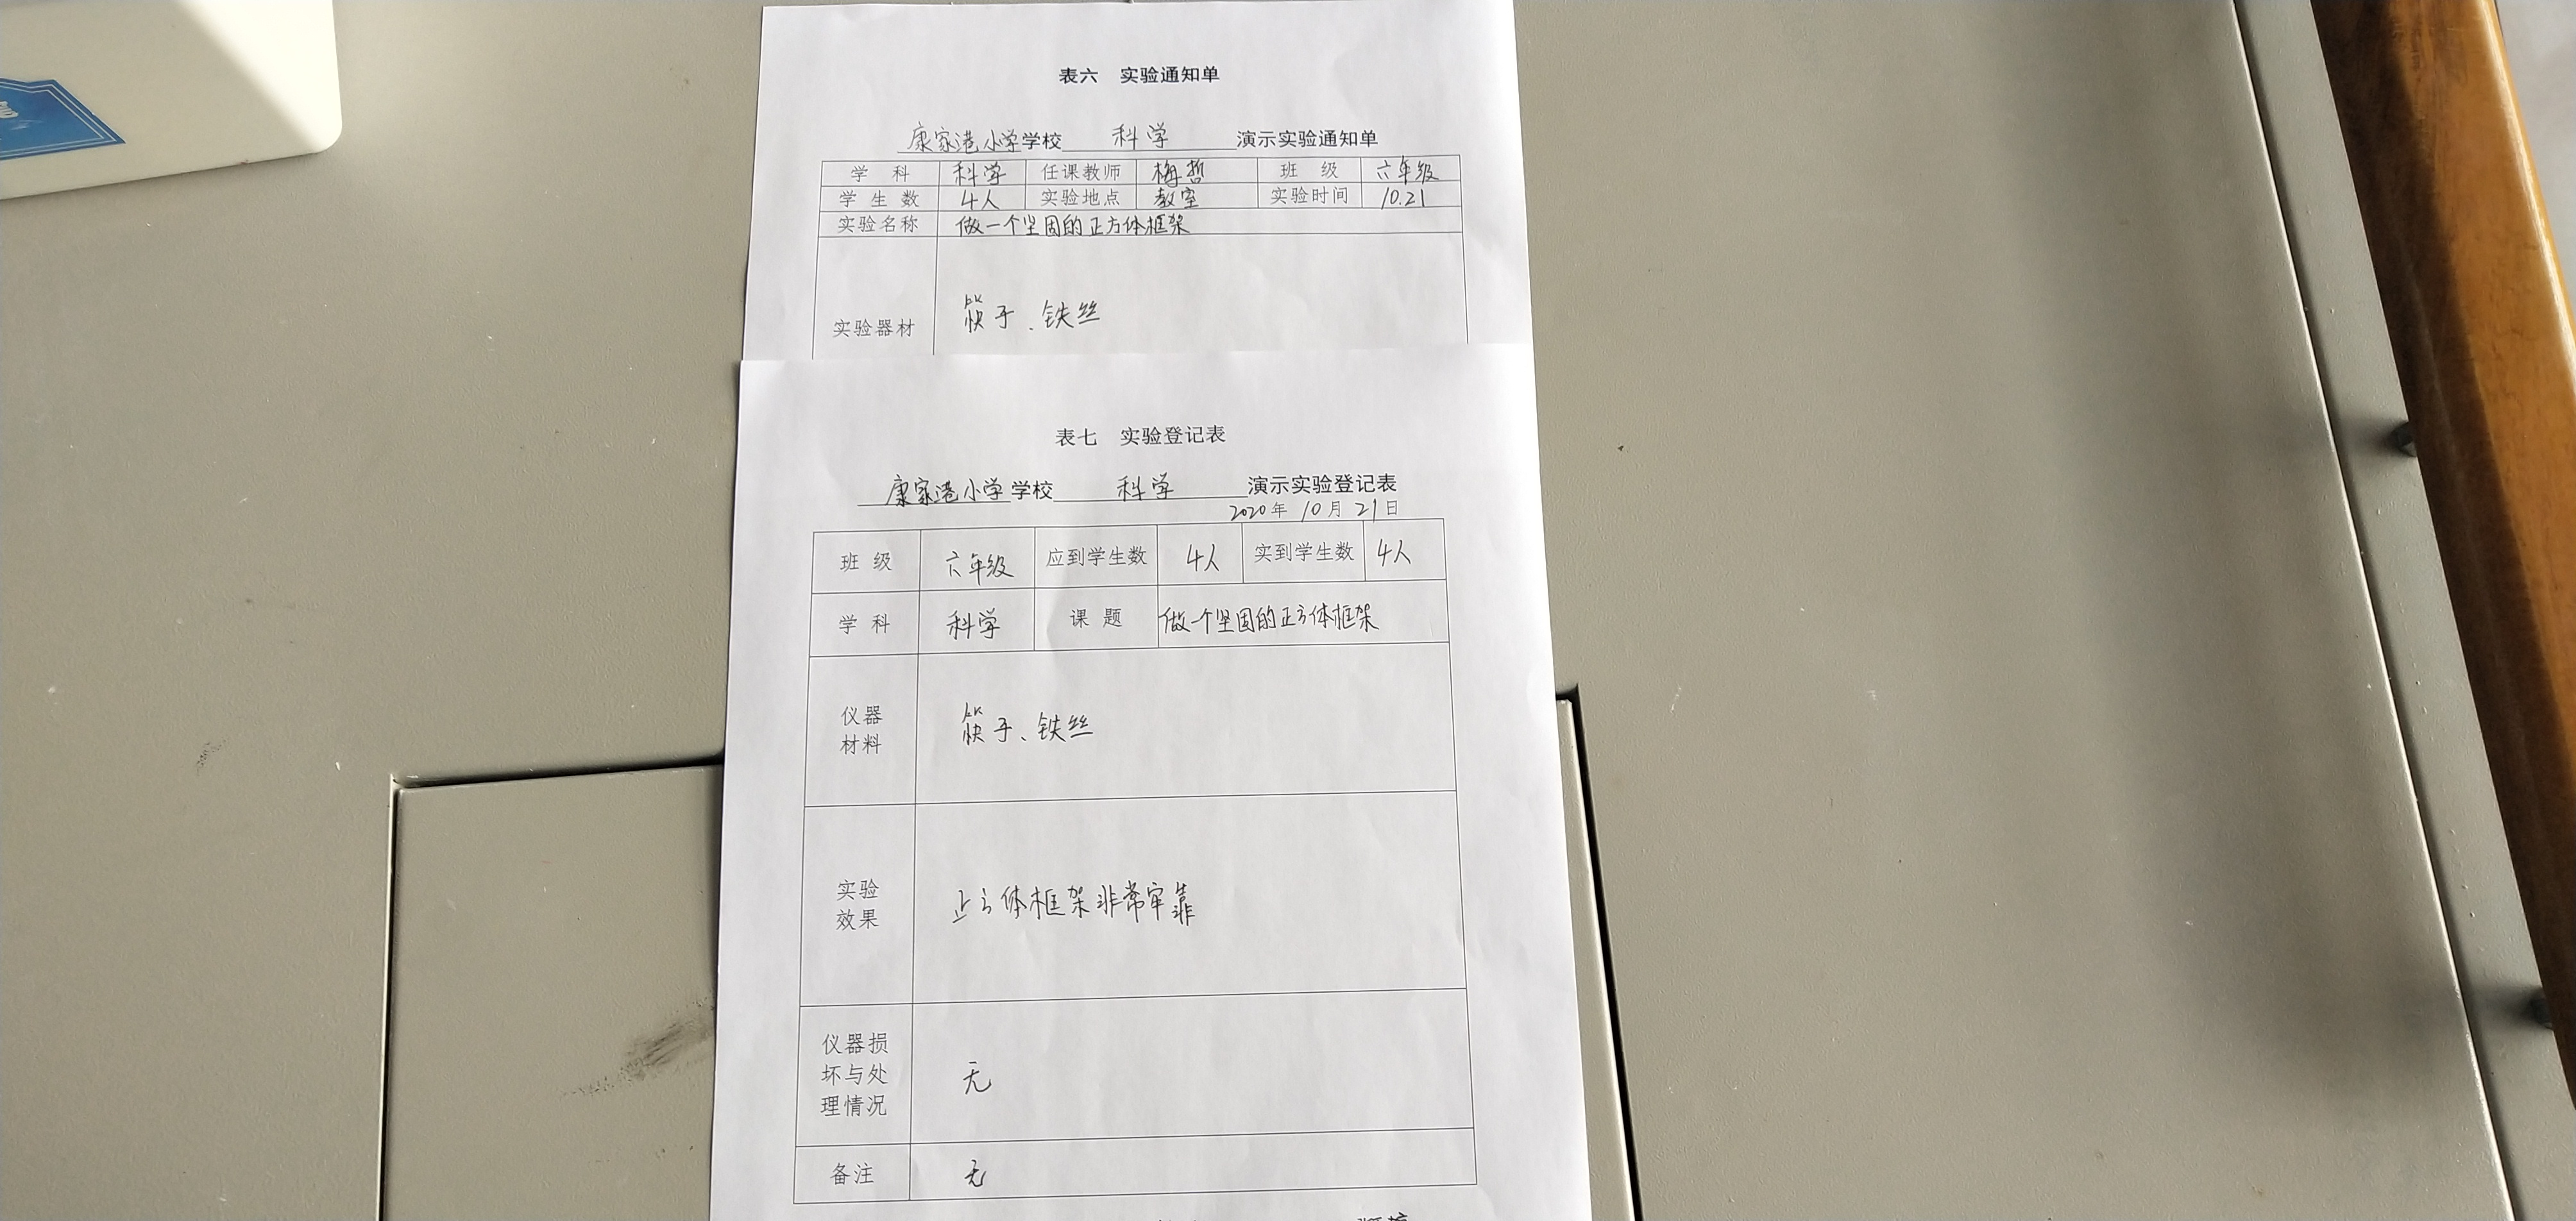 表六 实验通知单
康家港小学学校 科学 演示实验通知单
学 科 科学 任课教师 梅哲 班 级 六年级
学 生 数 4人 实验地点 教室 实验时间 10.21
实验名称 做一个坚固的正方体框架
实验器材 筷子、铁丝
表七 实验登记表
康家港小学学校 科学 演示实验登记表
2020年 10月 21日
班 级 六年级 应到学生数 4人 实到学生数 4人
学 科 科学 课 题 做一个坚固的正方体框架
仪器
材料 筷子、铁丝
实验
效果 正方体框架非常牢靠
仪器损
坏与处
理情况 无
备注 无